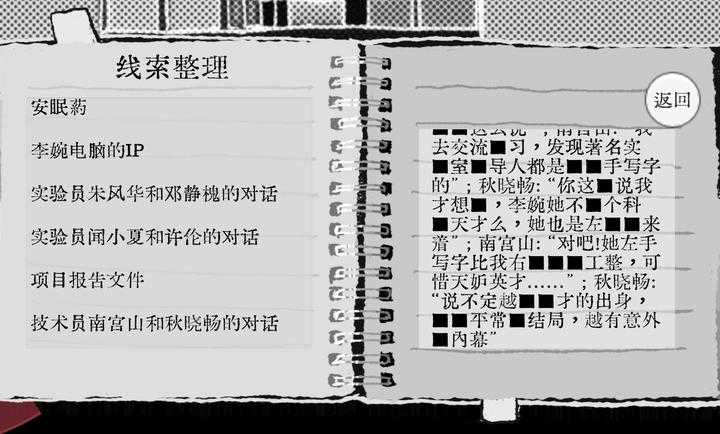 线索整理
安眠药
李婉电脑的IP
实验员朱风华和邓静槐的对话
实验员闻小夏和许伦的对话
项目报告文件
技术员南宫山和秋晓畅的对话
返回
■■这么优”；南宫山：“我
去交流■习，发现著名实
■室■导人都是■■手写字
的”；秋晓畅：“你这■说我
才想■，李婉她不■个科
■天才么，她也是左■■来
着”；南宫山：“对吧!她左手
写字比我右■■■工整，可
惜天妒英才……”；秋晓畅：
“说不定越■■才的出身，
■■平常■结局，越有意外
■内幕”